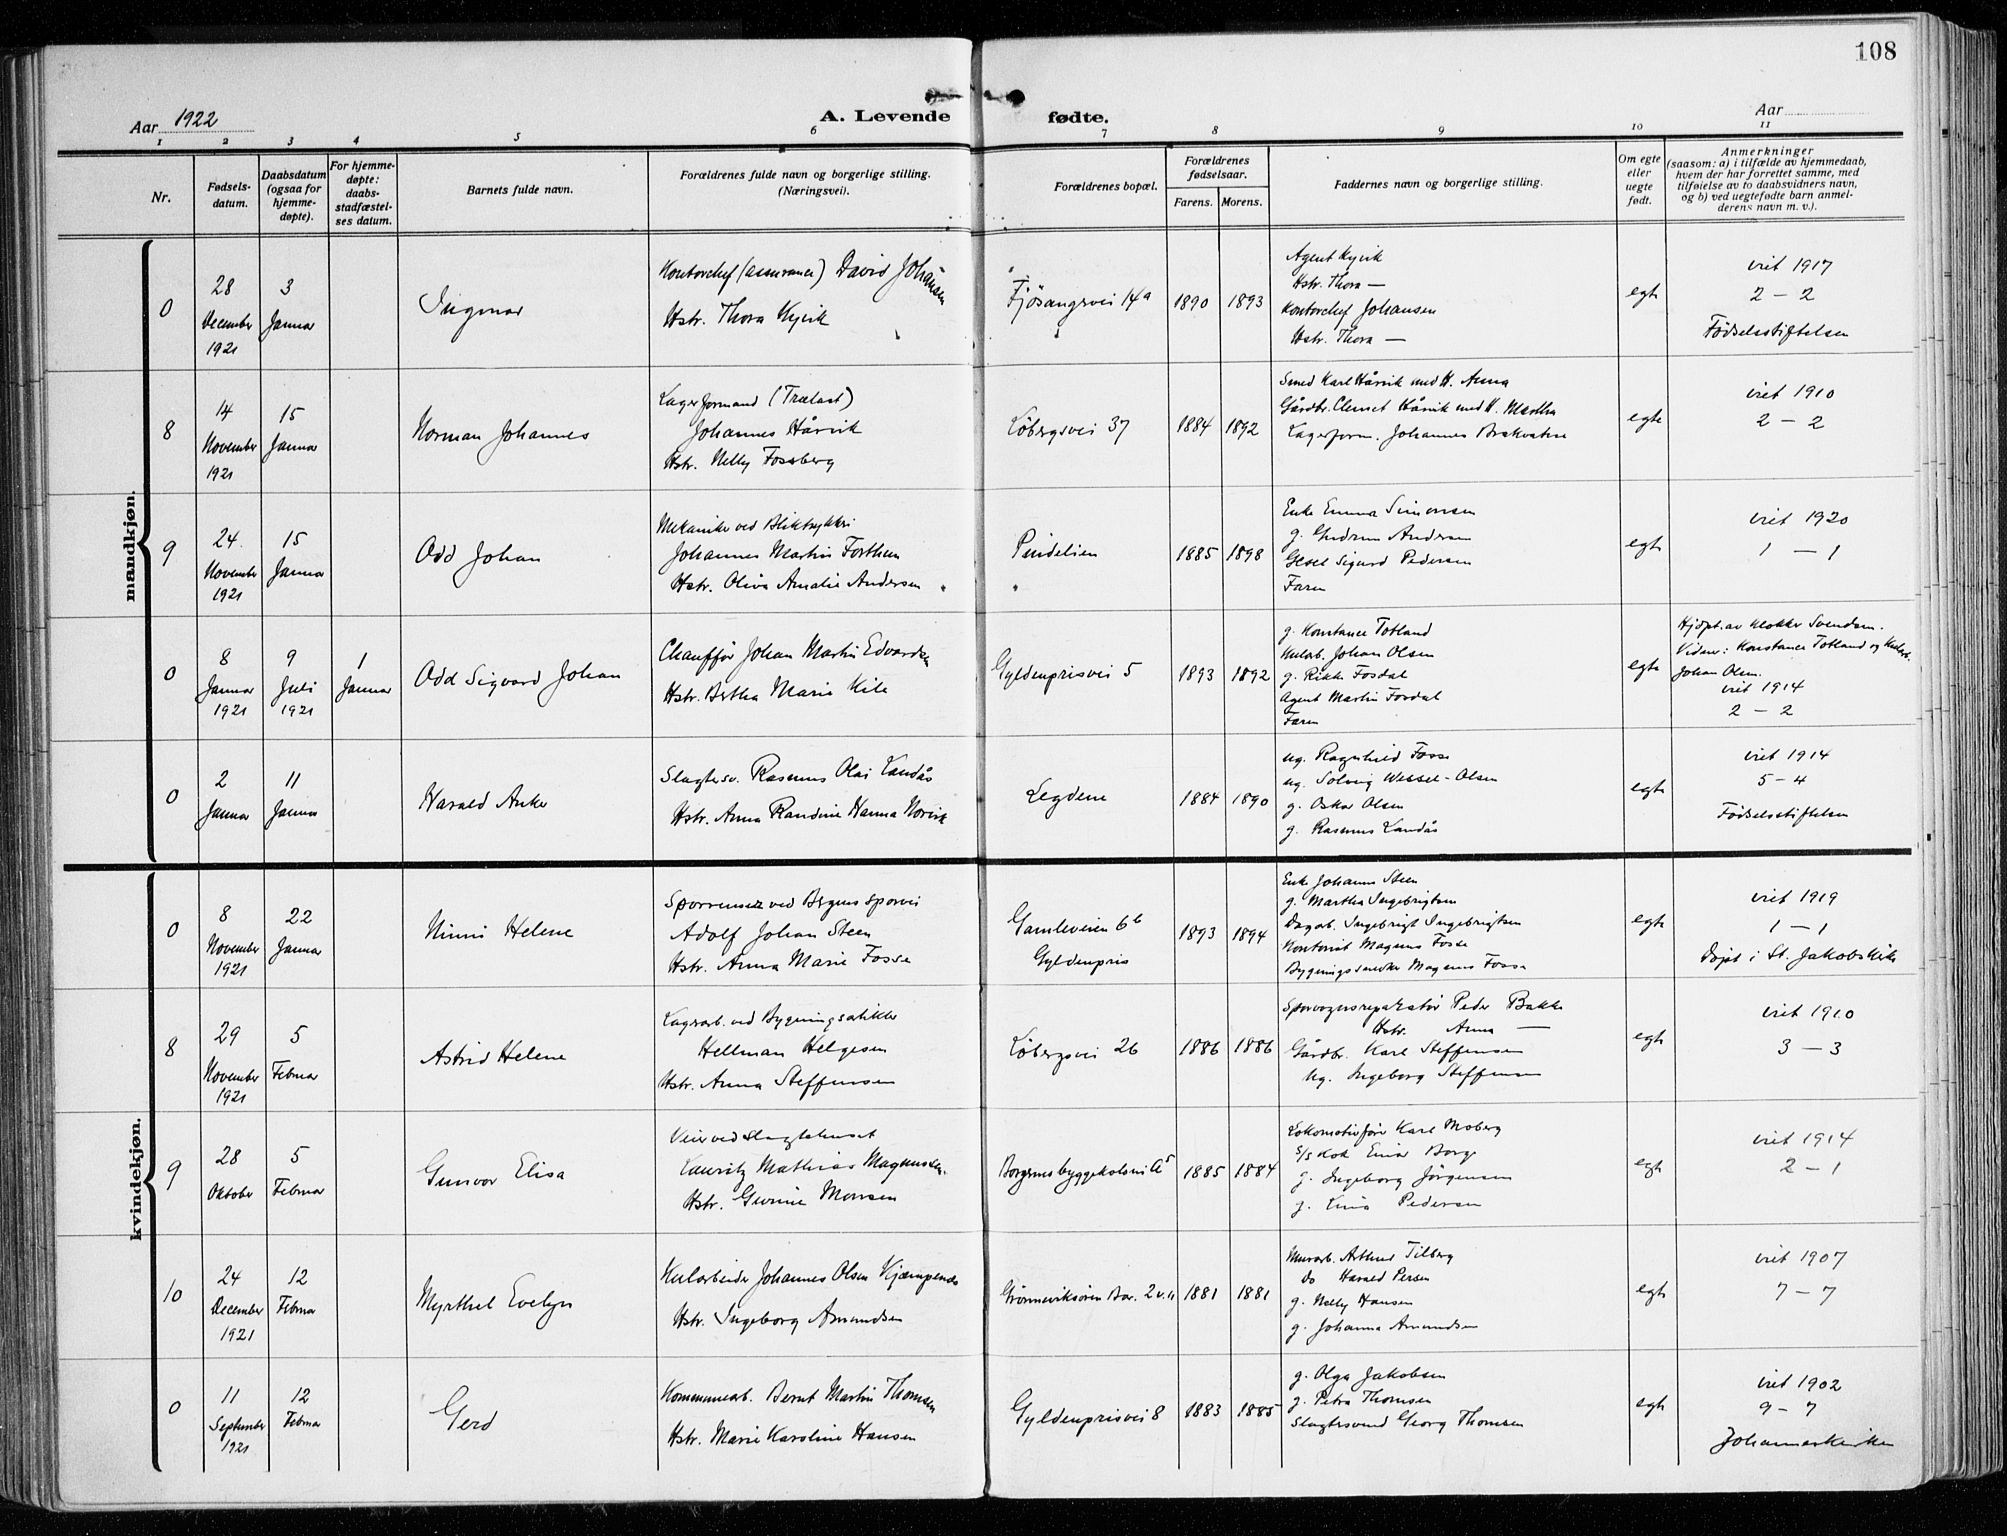 108
Aar 1922
A. Levende fødte.
Aar
1 2 3 4 5 6 7 8 9 10 11
Nr.
Fødsels-
datum.
Daabsdatum
(ogsaa for
hjemme-
døpte).
For hjemme-
døpte:
daabs-
stadfæstel-
ses datum.
Barnets fulde navn.
Forældrenes fulde navn og borgerlige stilling.
(Næringsvei).
Forældrenes bopæl.
Forældrenes
fødselsaar.
Farens. Morens.
Faddernes navn og borgerlige stilling.
Om egte
eller
uegte
født.
Anmerkninger
(saasom: a) i tilfælde av hjemmedaab,
hvem der har forrettet samme, med
tilføielse av to daabsvidners navn,
og b) ved uegtefødte barn anmel-
derens navn m. v.).
mandkjøn.
0
28
December
1921
3
Januar
Ingmar
Kontorchef (assurance) David Johansen
Hstr. Thora Kyvik
Fjösangsvei 14a
1890
1893
Agent Kyvik
Hstr. Thora —
Kontorchef Johansen
Hstr. Thora —
egte
viet 1917
2 – 2
Fødselsstiftelsen
8
14
November
1921
15
Januar
Norman Johannes
Lagerformand (Trælast)
Johannes Hårvik
Hstr. Nelly Fossberg
Löbergsvei 37
1884
1892
Smed Karl Hårvik med H. Anna
Gårdbr. Clemet Hårvik med H. Martha
Lagerform. Johannes
egte
viet 1910
2 – 2
9
24.
November
1921
15
Januar
Odd Johan
Mekaniker ved
Johannes Martin Forthun
Hstr. Oliva Amalie Andersen
Pindelien
1885
1898
Enke Emma Simonsen
g. Gudrun Andersen
Gesel Sigurd Pedersen
Faren
egte
viet 1920
1 – 1
0
8
Januar
1921
9
Juli
1921
1
Januar
Odd Sigvard Johan
Chauffør Johan Martin Edvardsen
Hstr. Bertha Marie Kile
Gyldenprisvei 5
1893
1892
g. Konstance Totland
Johan Olsen
g. Rikke Fosdal
Agent Martin Fosdal
Faren
egte
Hjdpt. av klokker Svendsen.
Vidner: Konstance Totland og
Johan Olsen.
viet 1914
2 – 2
0
2
Januar
11
Januar
Harald Anker
Slagtersv. Rasmus Olai Landås
Hstr. Anna Randine Hanna Norvik
Legdene
1884
1890
ug. Ragnhild Fosse
ug. Solveig Wessel-Olsen
g. Oskar Olsen
g. Rasmus Landås
egte
viet 1914
5 – 4
Fødselsstiftelsen
kvindekjøn.
0
8
November
1921
22
Januar
Ninni Helene
ved Bergens sporvei
Adolf Johan Steen
Hstr. Anna Marie Fosse
Gamleveien 6b
Gyldenpris
1893
1894
Enke Johanne Steen
g. Martha Ingebrigtsen
Dagarb. Ingebrigt Ingebrigtsen
Kontorist Magnus Fosse
Bygningssnedker Magnus Fosse
egte
viet 1919
1 – 1
Døpt i St. Jakobs Kirke
8
29
November
1921
5
Februar
Astrid Helene
Lagerarb. ved Bygningsartikler
Hellman Helgesen
Hstr. Anna Steffensen
Löbergsvei 26
1886
1886
Sporvognsreparatør Peder Bakke
Hstr. Anna —
Gårdbr. Karl Steffensen
ug. Ingeborg Steffensen
egte
viet 1910
3 – 3
9
28
Oktober
5
Februar
Gunvor Elisa
Veier ved Slagtehuset
Lauritz Mathias Magnussen.
Hstr. Gurine Monsen
1885
1884
Lokomotivfører Karl Moberg
S/s Kok Einar Borge
g. Ingeborg Jörgensen
g. Lina Pedersen
egte
viet 1914
2 – 1
10
24
December
1921
12
Februar
Myrthel Evelyn
Kularbeider Johannes Olsen Kjæmpenes
Hstr. Ingeborg Amundsen
Grønneviksøren Bar. 2
1881
1881
Murarb. Arthur Tilberg
do Harald Persen
g. Nelly Hansen
g. Johanna Amundsen
egte
viet 1907
7 – 7
0
11
September
1921
12
Februar
Gerd
Kommunearb. Bernt Martin Thomsen
Hstr. Marie Karoline Hansen
Gyldenprisvei 8
1883
1885
g. Olga Jakobsen
g. Petra Thomsen
Slagtersvend Georg Thomsen
egte
viet 1902
9 – 7
Johanneskirken